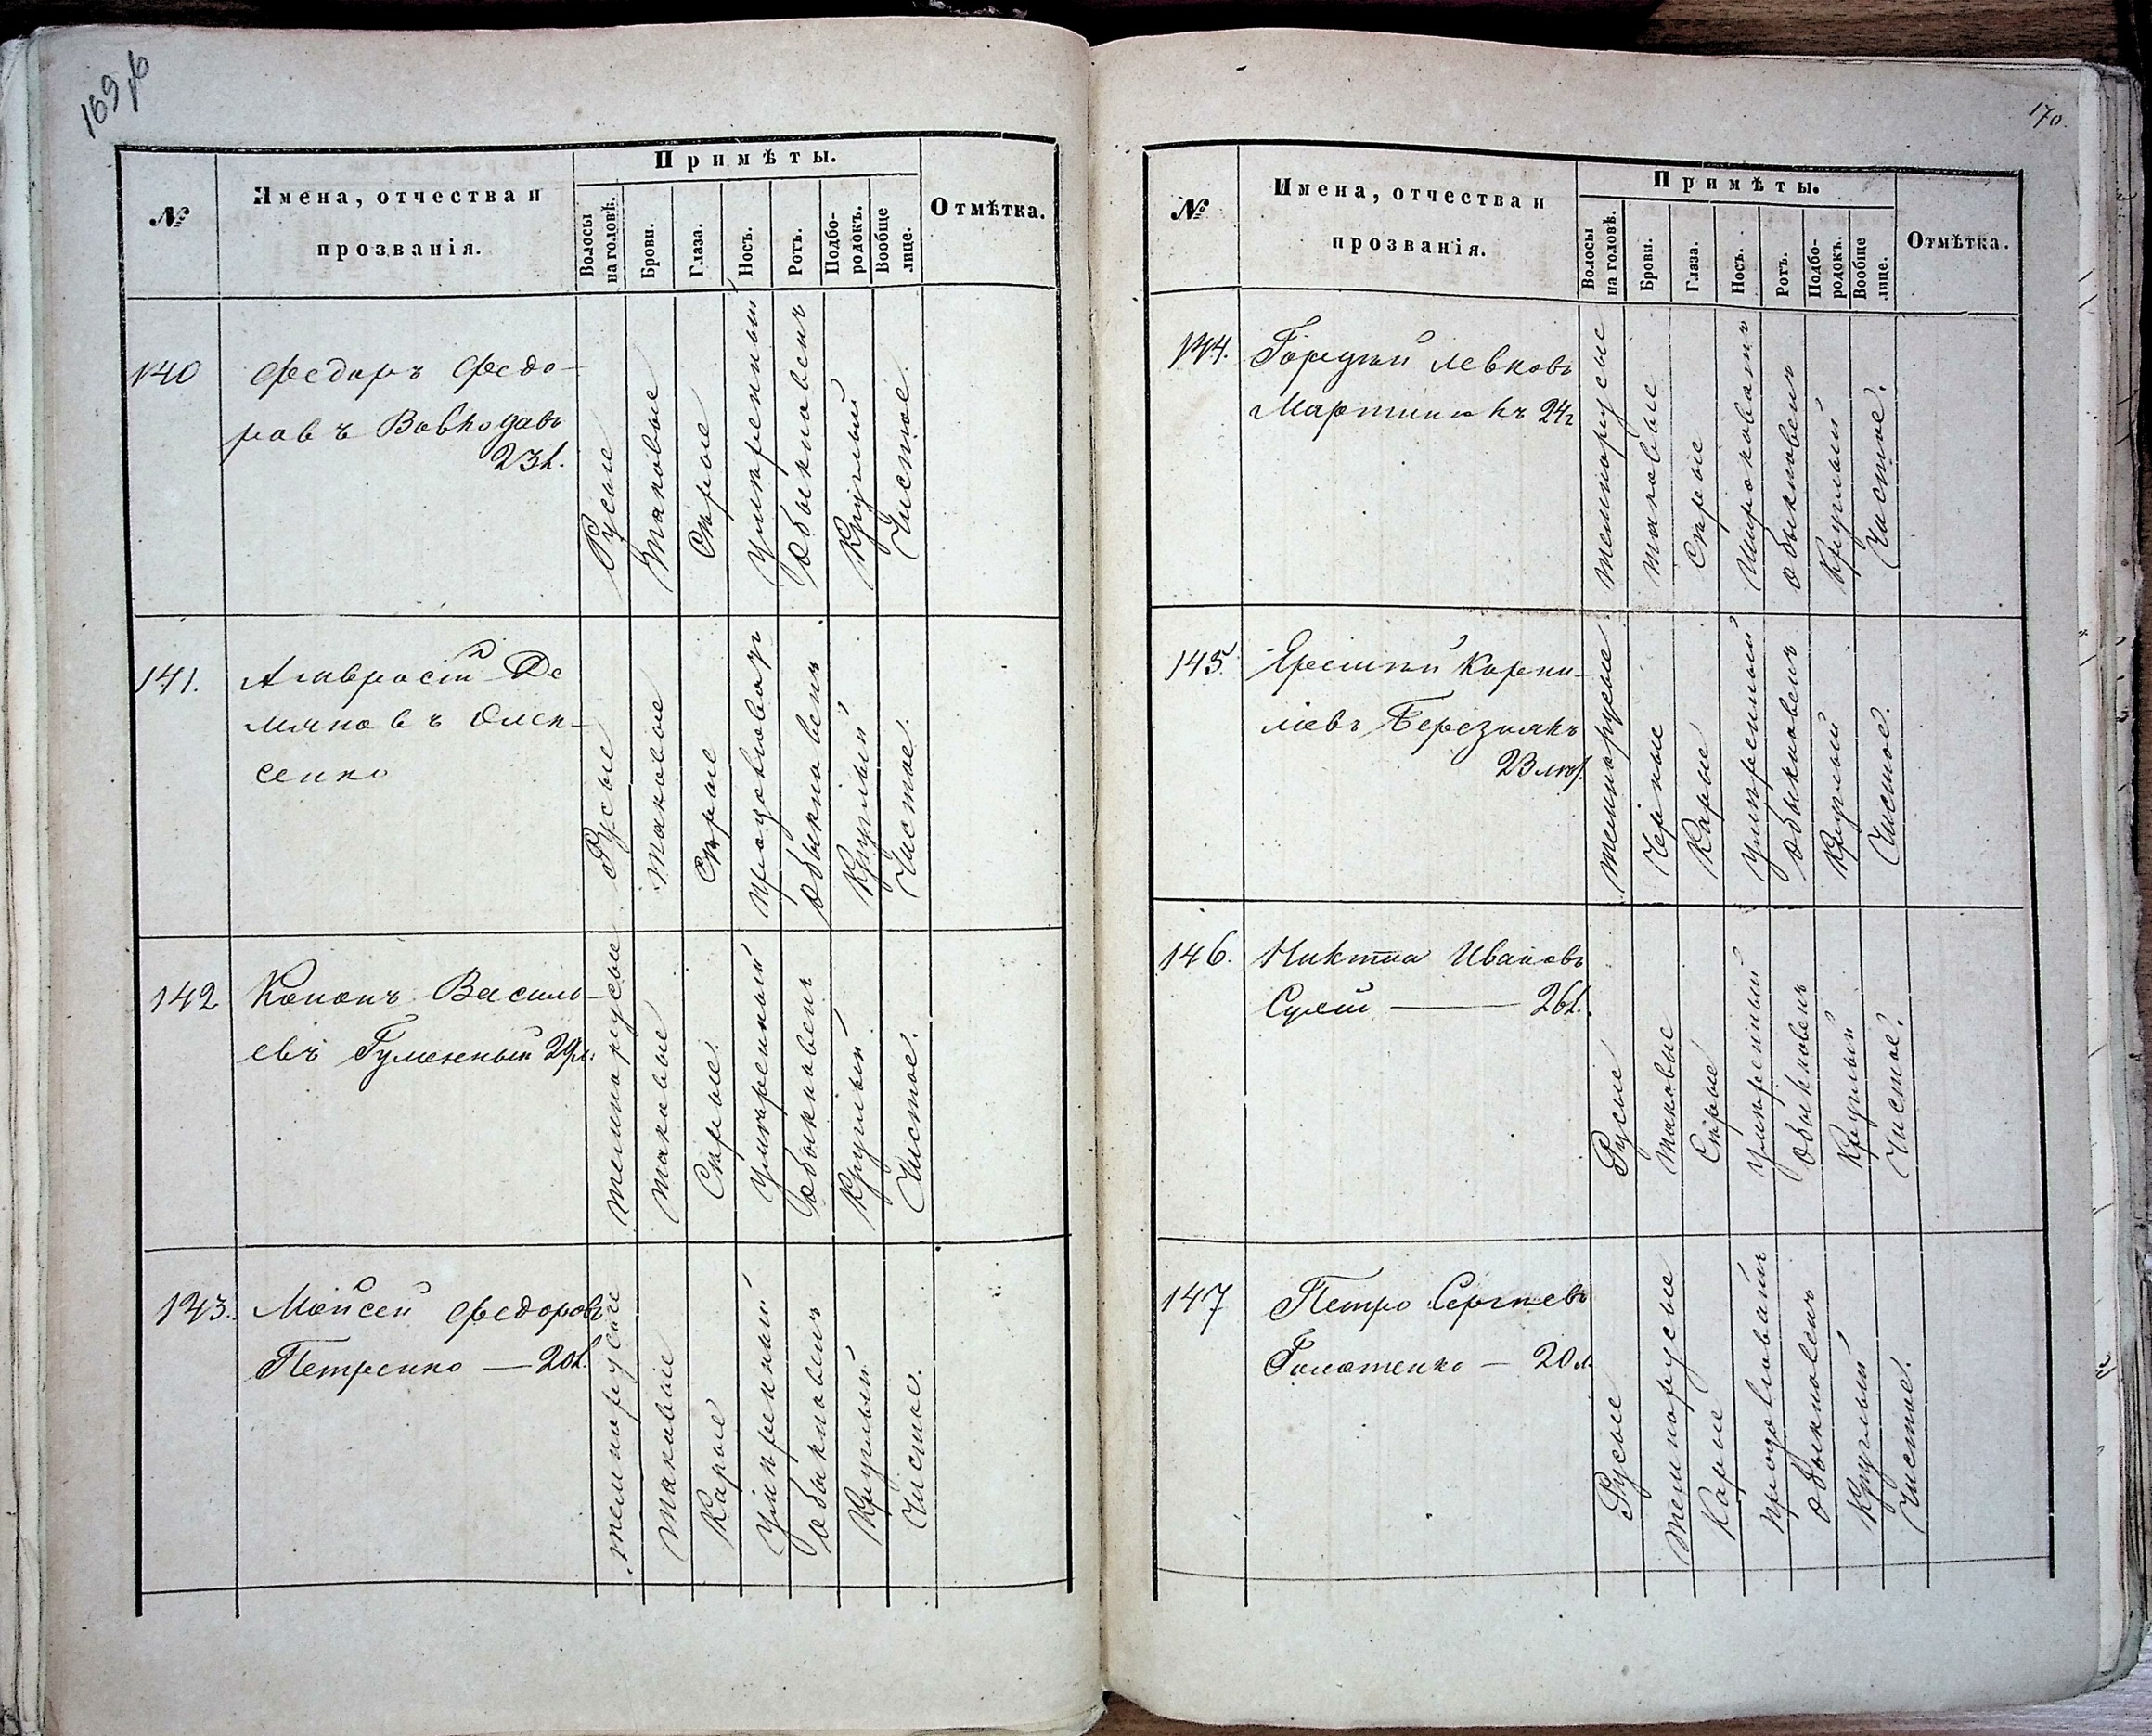 169 об
№
Имена, отчества и
прозванія.
Примѣты.
Волосы
на головѣ.
Брови.
Глаза.
Носъ.
Ротъ.
Подбо-
родокъ.
Вообще
лице.
Отмѣтка.
140
Федоръ Федо-
ровъ Вовкодавъ
23 л.
Русые
таковые
Сѣрые
умѣренный
обыкновен
Круглый
Чистое.
141.
Амвросій Де
мяновъ Олек-
сенко
Русые
таковые
Сѣрые
продолговат
обыкновен
Круглый
Чистое.
142
Кононъ Василь-
евъ Гуменный 29 л.
темнорусые
таковые
Сѣрые.
умѣренный
обыкновен
Круглый
Чистое.
143.
Мойсей Федоровъ
Петренко — 20 л.
темнорусые
таковые
Карые
умѣренный
обыкновен
Круглый
Чистое.
170.
№
Имена, отчества и
прозванія.
Примѣты.
Волосы
на головѣ.
Брови.
Глаза.
Носъ.
Ротъ.
Подбо-
родокъ.
Вообще
лице.
Отмѣтка.
144.
Гордѣй Левковъ
Мартинюкъ 24 г
темнорусые
таковые
Сѣрые
Широковатъ
обыкновен
Круглый
Чистое.
145.
Ярешій Корни-
ліевъ Березнякъ
23 лѣт.
темнорусые
Черные
Карые
умѣренный
обыкновен
Круглый
Чистое.
146.
Никита Ивановъ
26 л.
Русые
таковые
Сѣрые
умѣренный
обыкновен
Круглый
Чистое.
147
Петро Сергѣевъ
Голотенко — 20 л.
Русые
темнорусые
Карые
продолговатъ
обыкновен
Круглый
Чистое.